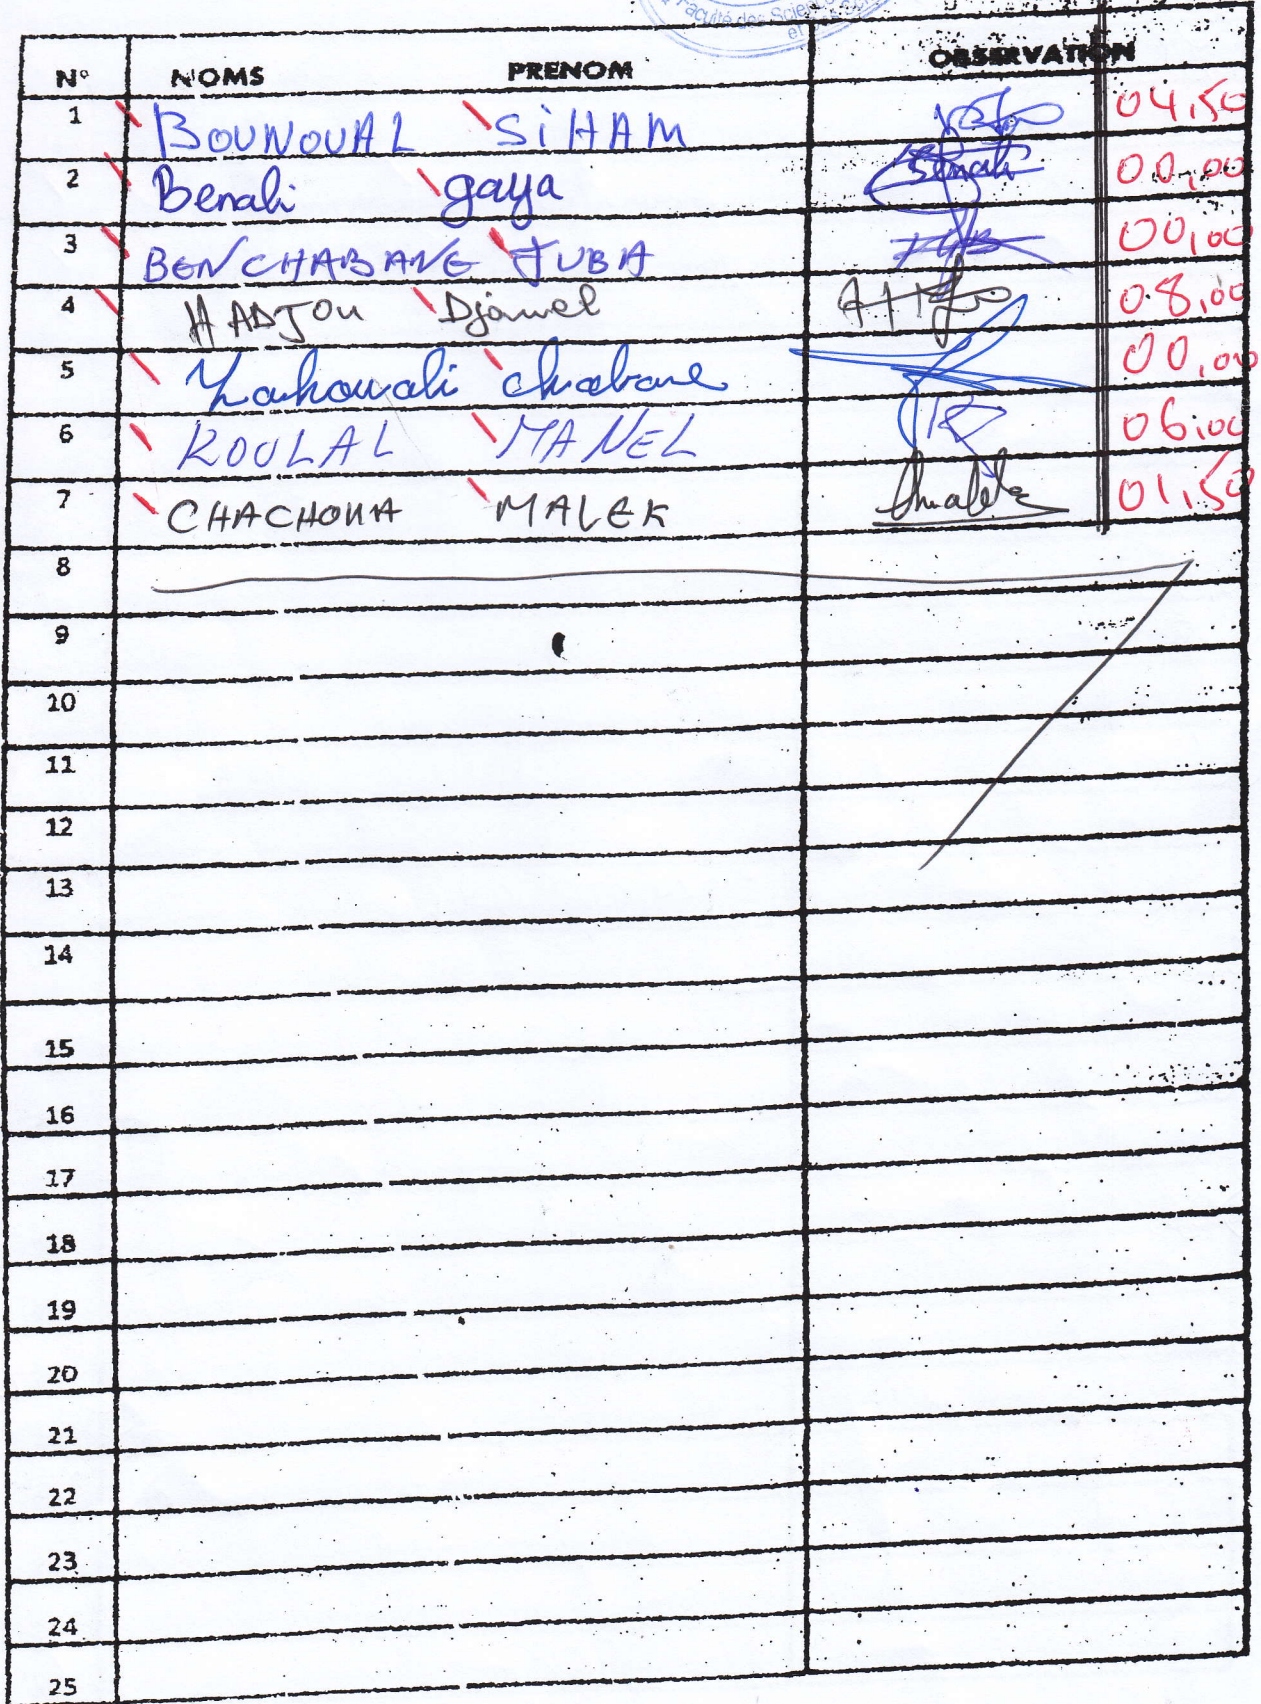 Faculté des Scien
et
N° NOMS PRENOM OBSERVATION
1 BOUNOUAL SiHAM 04,50
2 Benali gaya Benali 00,00
3 BENCHABANE JUBA 00,00
4 HADJOU Djamel 08,00
5 chabane 00,00
6 KOULAL MANEL 06,00
7 CHACHOUA MALEK 01,50
8
9
10
11
12
13
14
15
16
17
18
19
20
21
22
23
24
25